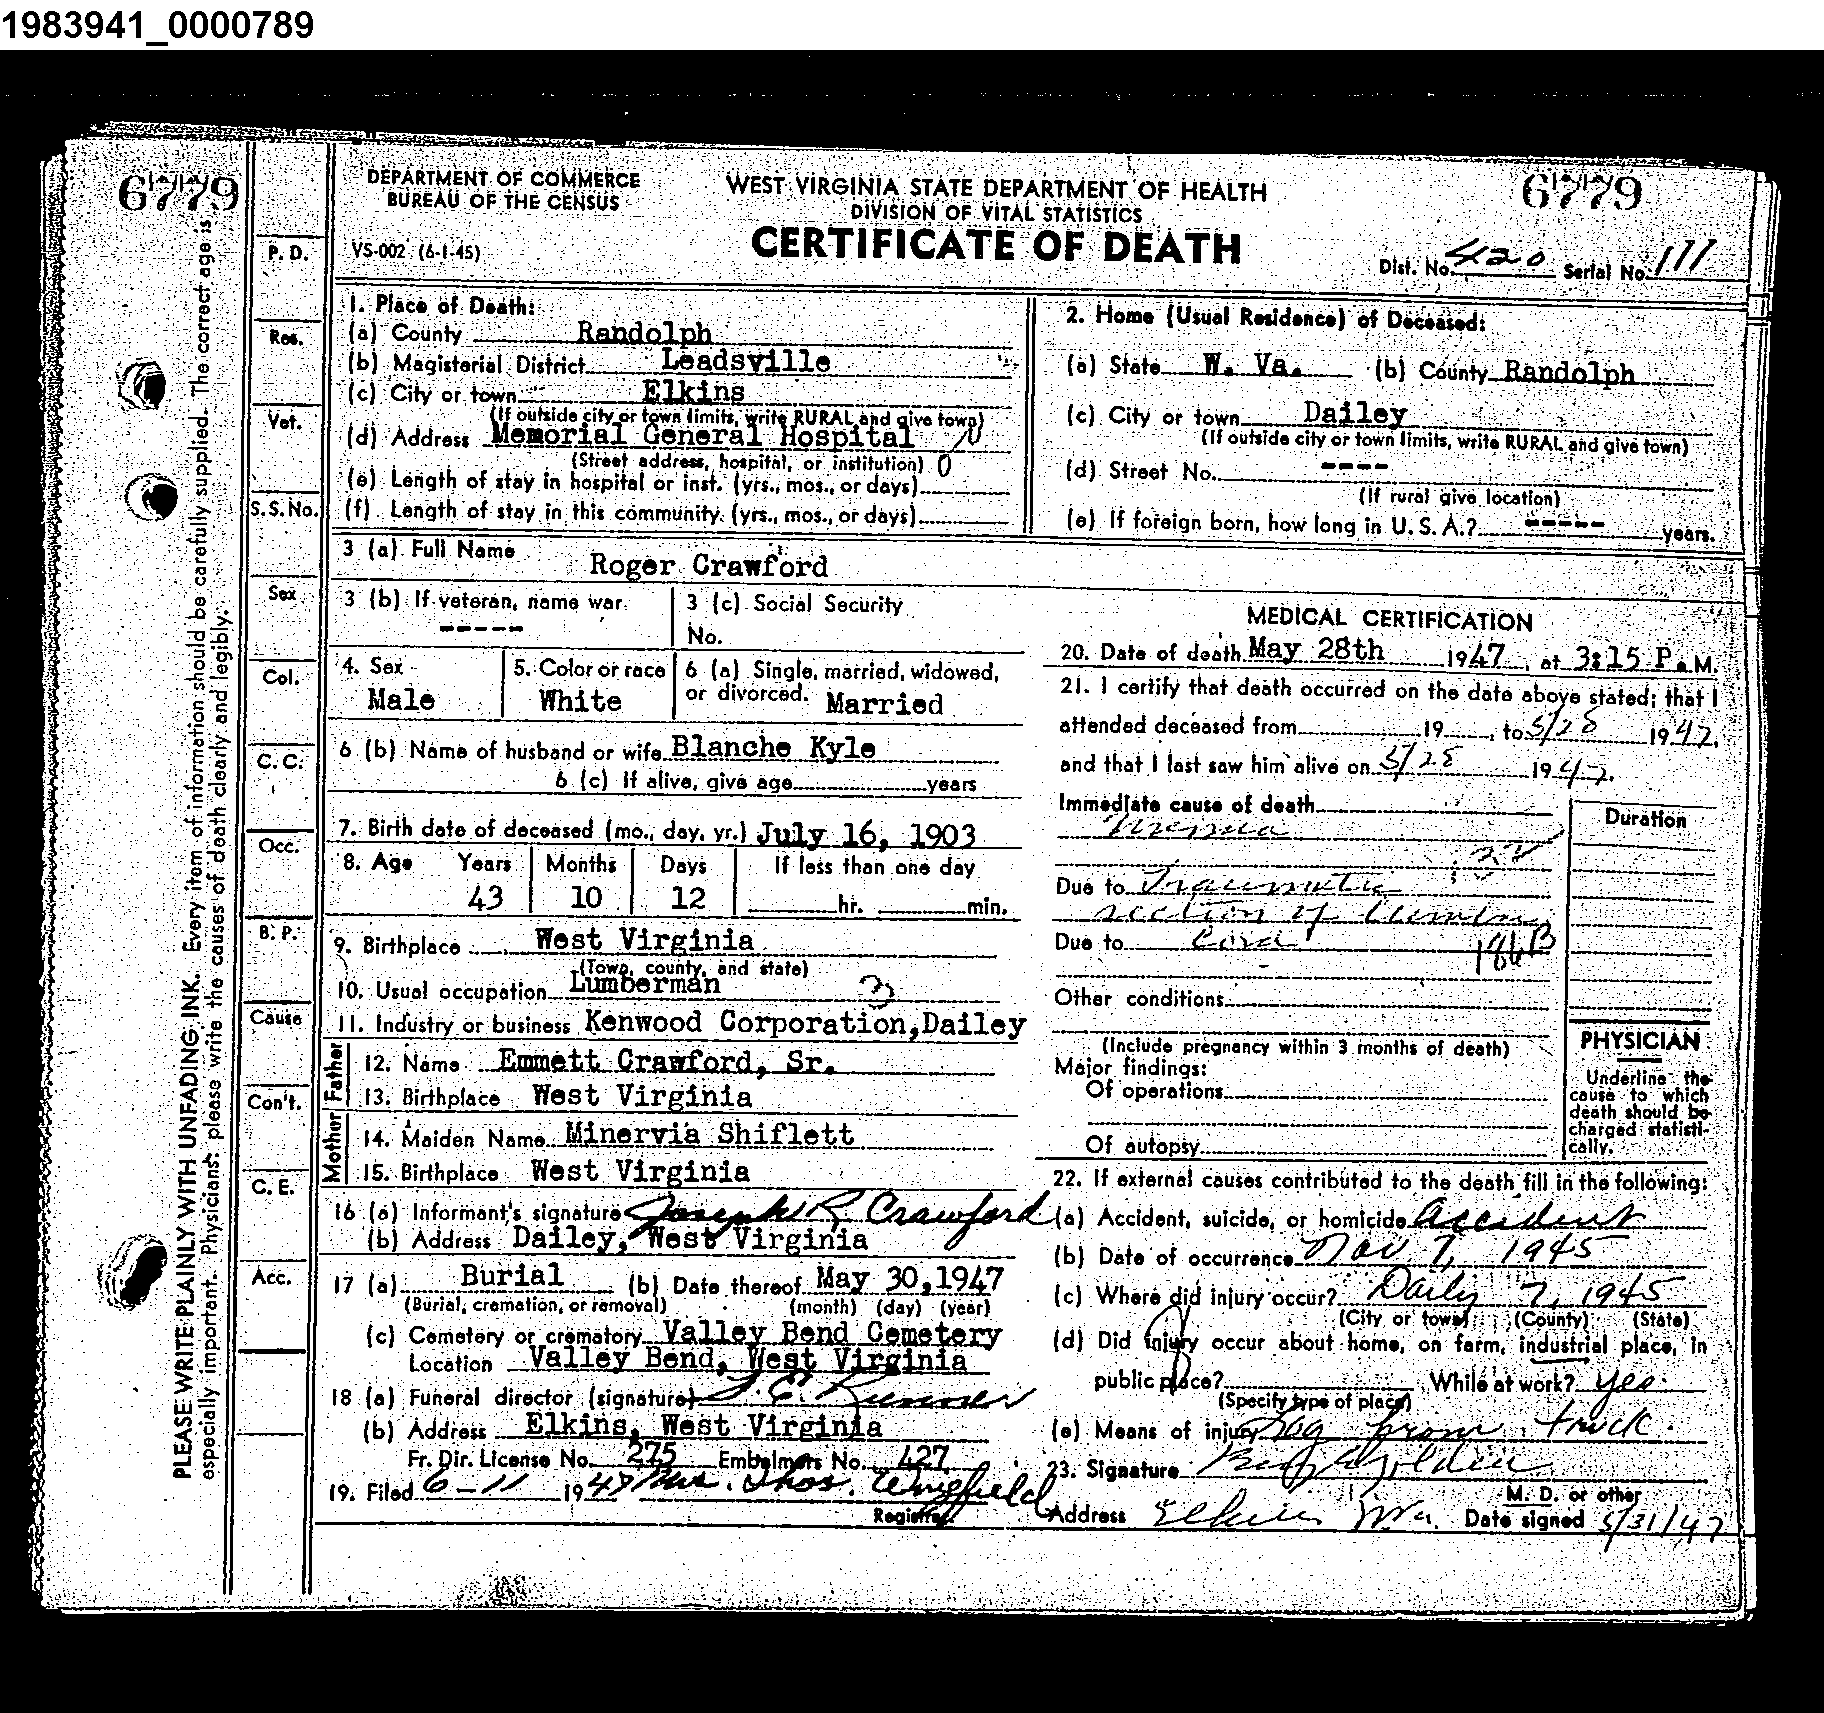 1983941_0000789
6779
6779
DEPARTMENT OF COMMERCE
BUREAU OF THE CENSUS
VS-002 (6-1-45)
WEST VIRGINIA STATE DEPARTMENT OF HEALTH
DIVISION OF VITAL STATISTICS
CERTIFICATE OF DEATH
Dist. No. 420 Serial No. 111
PLEASE WRITE PLAINLY WITH UNFADING INK. Every item of information should be carefully supplied. The correct age is
especially important. Physicians: please write the causes of death clearly and legibly.
P. D.
Res.
Vet.
S. S. No.
Sex
Col.
C. C.
Occ.
B. P.
Cause
Con't.
C. E.
Acc.
1. Place of Death:
(a) County Randolph
(b) Magisterial District Leadsville
(c) City or town Elkins
(If outside city or town limits, write RURAL and give town)
(d) Address Memorial General Hospital
(Street address, hospital, or institution) 0
(e) Length of stay in hospital or inst. (yrs., mos., or days)
(f) Length of stay in this community (yrs., mos., or days)
2. Home (Usual Residence) of Deceased:
(a) State W. Va. (b) County Randolph
(c) City or town Dailey
(If outside city or town limits, write RURAL and give town)
(d) Street No. ----
(If rural give location)
(e) If foreign born, how long in U. S. A.? ----- years.
3 (a) Full Name Roger Crawford
3 (b) If veteran, name war
-----
3 (c) Social Security
No.
4. Sex
Male
5. Color or race
White
6 (a) Single, married, widowed,
or divorced. Married
6 (b) Name of husband or wife Blanche Kyle
6 (c) If alive, give age years
7. Birth date of deceased (mo., day, yr.) July 16, 1903
8. Age Years Months Days If less than one day
43 10 12 hr. min.
9. Birthplace West Virginia
(Town, county, and state)
10. Usual occupation Lumberman 3
11. Industry or business Kenwood Corporation, Dailey
Father
12. Name Emmett Crawford, Sr.
13. Birthplace West Virginia
Mother
14. Maiden Name Minervia Shiflett
15. Birthplace West Virginia
16 (a) Informant's signature Joseph R Crawford
(b) Address Dailey, West Virginia
17 (a) Burial (b) Date thereof May 30, 1947
(Burial, cremation, or removal) (month) (day) (year)
(c) Cemetery or crematory Valley Bend Cemetery
Location Valley Bend, West Virginia
18 (a) Funeral director (signature) J. E. Runner
(b) Address Elkins, West Virginia
Fr. Dir. License No. 275 Embalmers No. 427
19. Filed 6-11 1947 Mrs. Thos. Wingfield
Registrar
MEDICAL CERTIFICATION
20. Date of death May 28th 1947, at 3:15 P. M.
21. I certify that death occurred on the date above stated; that I
attended deceased from 19 , to 5/28 1947,
and that I last saw him alive on 5/28 1947.
Immediate cause of death
Uremia
Due to Traumatic
section of
Due to Cord 186B
Other conditions
(Include pregnancy within 3 months of death)
Major findings:
Of operations
Of autopsy
Duration
PHYSICIAN
Underline the
cause to which
death should be
charged statisti-
cally.
22. If external causes contributed to the death fill in the following:
(a) Accident, suicide, or homicide Accident
(b) Date of occurrence Nov 7, 1945
(c) Where did injury occur? Daily 7, 1945
(City or town) (County) (State)
(d) Did injury occur about home, on farm, industrial place, in
public place? While at work? yes.
(Specify type of place)
(e) Means of injury Log from truck.
23. Signature
M. D. or other
Address Elkins W Va. Date signed 5/31/47